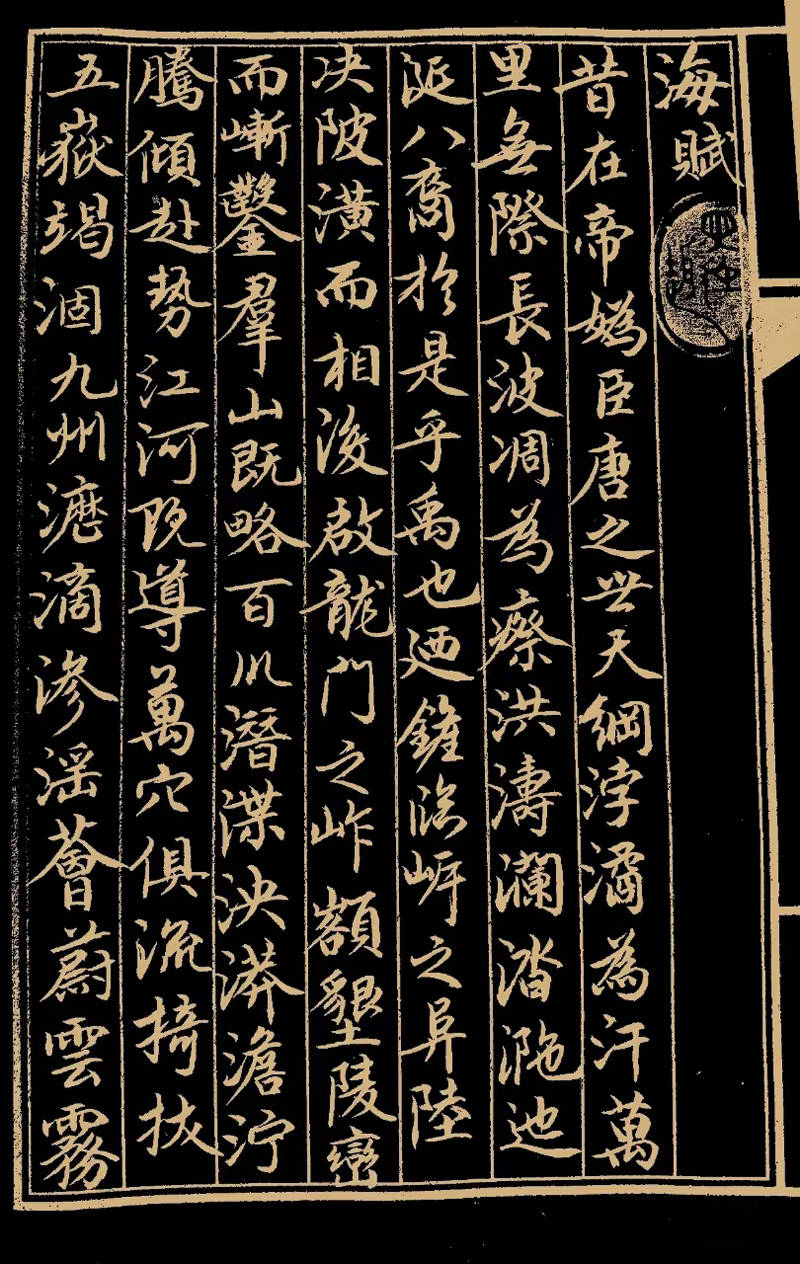 海賦
昔在帝媯臣唐之世天綱浡潏為汗萬
里無際長波凋為瘵洪濤瀾涾迆
涎八裔於是乎禹也廼鏟臨之阜陸
决陂潢而相浚啟龍門之岝額墾陵巒
而嶃鑿羣山既略百川潛渫泱漭澹泞
騰傾赴勢江河既導萬穴俱流掎拔
五嶽竭涸九州瀝滴滲淫薈蔚雲霧